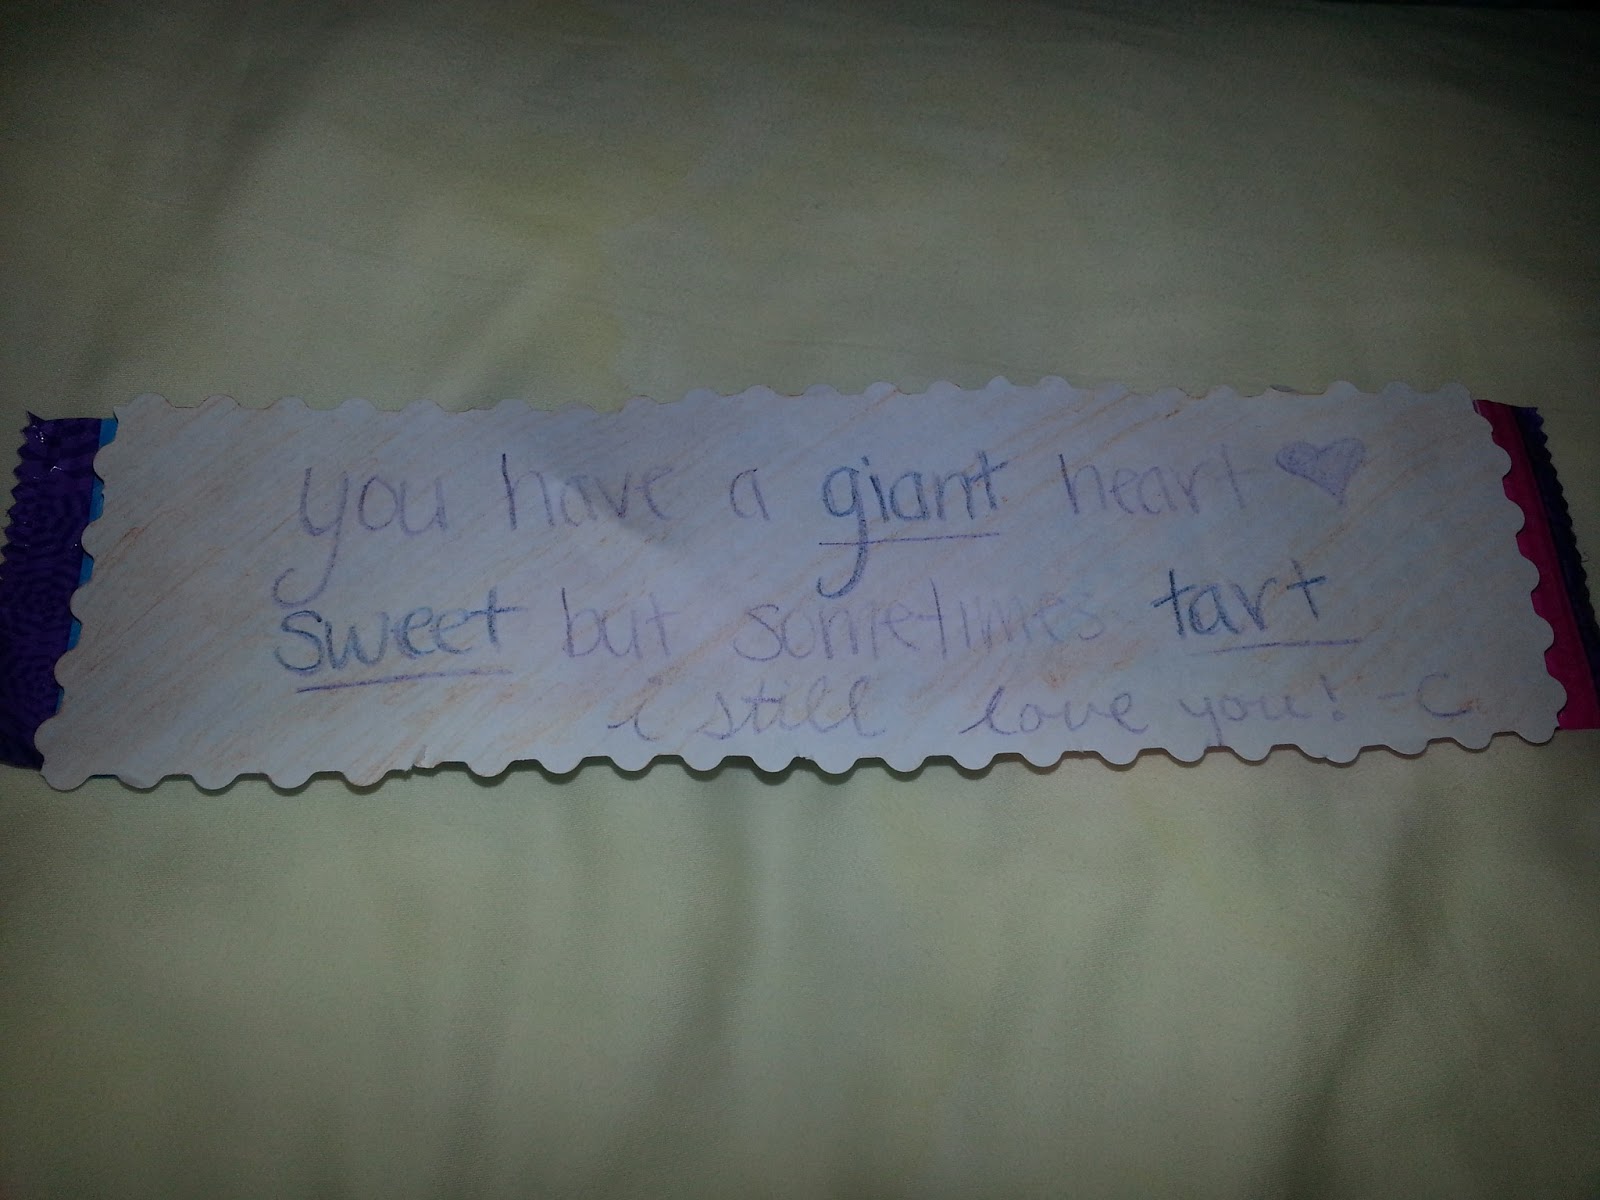 you have a giant heart
sweet but sometimes tart
i still love you! -C